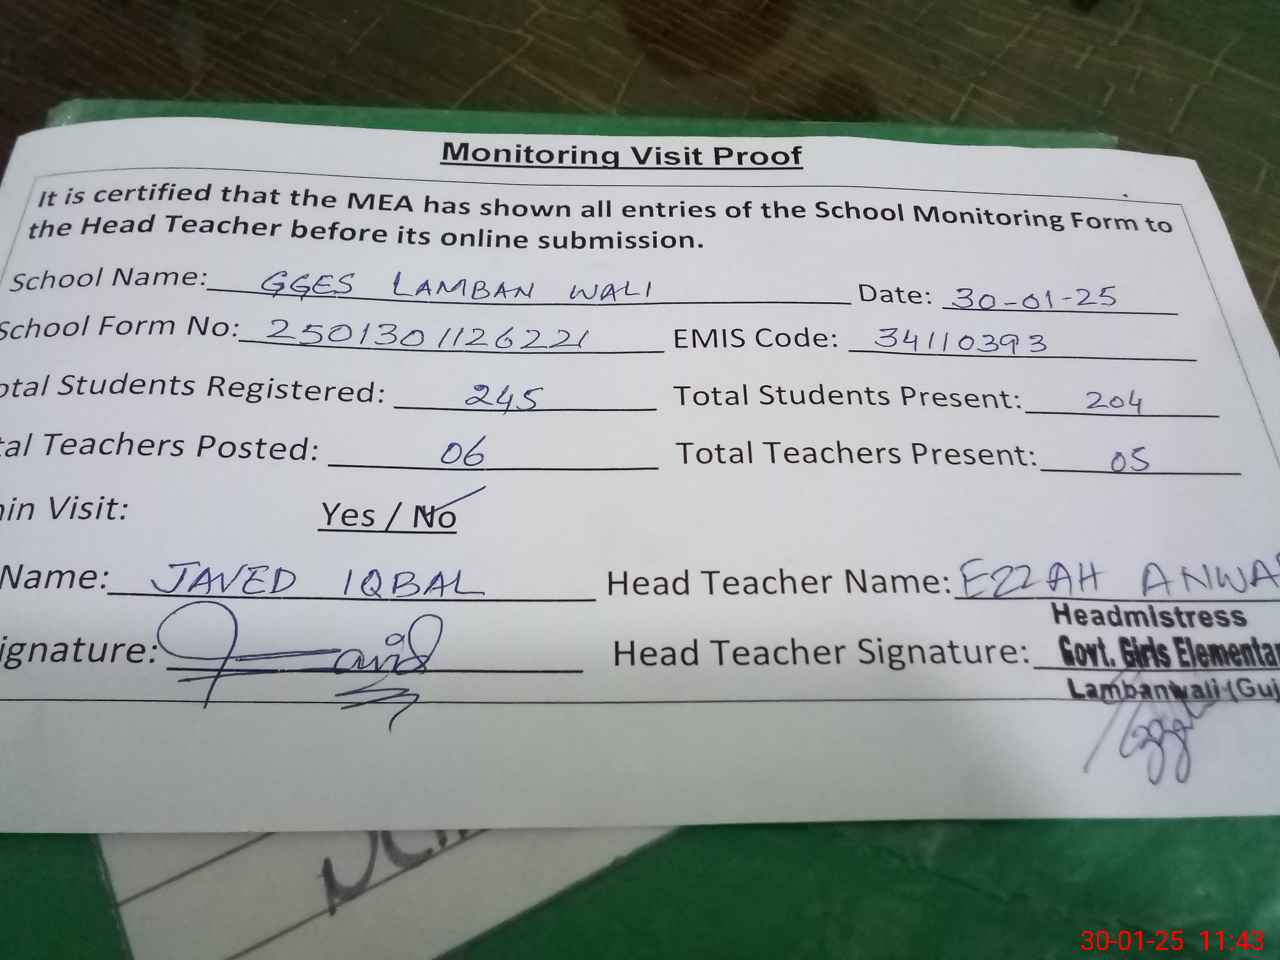 Monitoring Visit Proof
It is certified that the MEA has shown all entries of the School Monitoring Form to
the Head Teacher before its online submission.
School Name: GGES LAMBAN WALI Date: 30-01-25
School Form No: 2501301126221 EMIS Code: 34110393
otal Students Registered: 245 Total Students Present: 204
tal Teachers Posted: 06 Total Teachers Present: 05
nin Visit: Yes / No
Name: JAVED IQBAL Head Teacher Name: EZZAH ANWAR
Headmistress
ignature: Javid Head Teacher Signature: Govt. Girls Elementar
Lambanwali (Guj
30-01-25 11:43